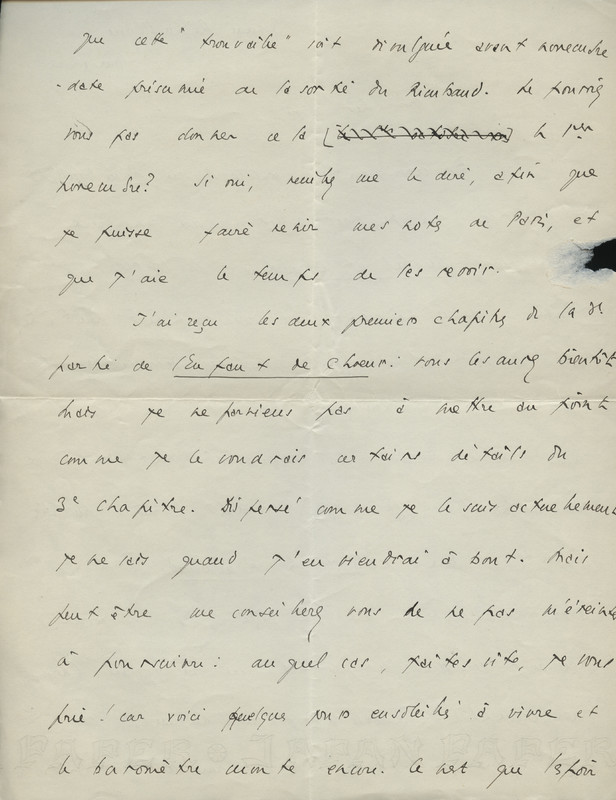 que cette "trouvaille" soit divulguée avant novembre
- date présumée de la sortie du Rimbaud. Ne pourriez
vous pas donner ce la le 1er
novembre? Si oui, veuillez me le dire, afin que
je puisse faire venir mes notes de Paris, et
que j'aie le temps de les revoir.
J'ai reçu les deux premiers chapitres de la 2e
partie de l'Enfant de Choeur: vous les aurez bientôt
mais je ne parviens pas à mettre au point
comme je le voudrais certains détails du
3e chapitre. Dispersé comme je le suis actuellement
je ne sais quand j'en viendrai à bout. Mais
peut être me conseillerez vous de ne pas m'éreinter
à poursuivre: auquel cas, faites vite, je vous
prie! car voici quelques jours ensoleillés à vivre et
le baromètre monte encore. Ce n'est que l'espoir